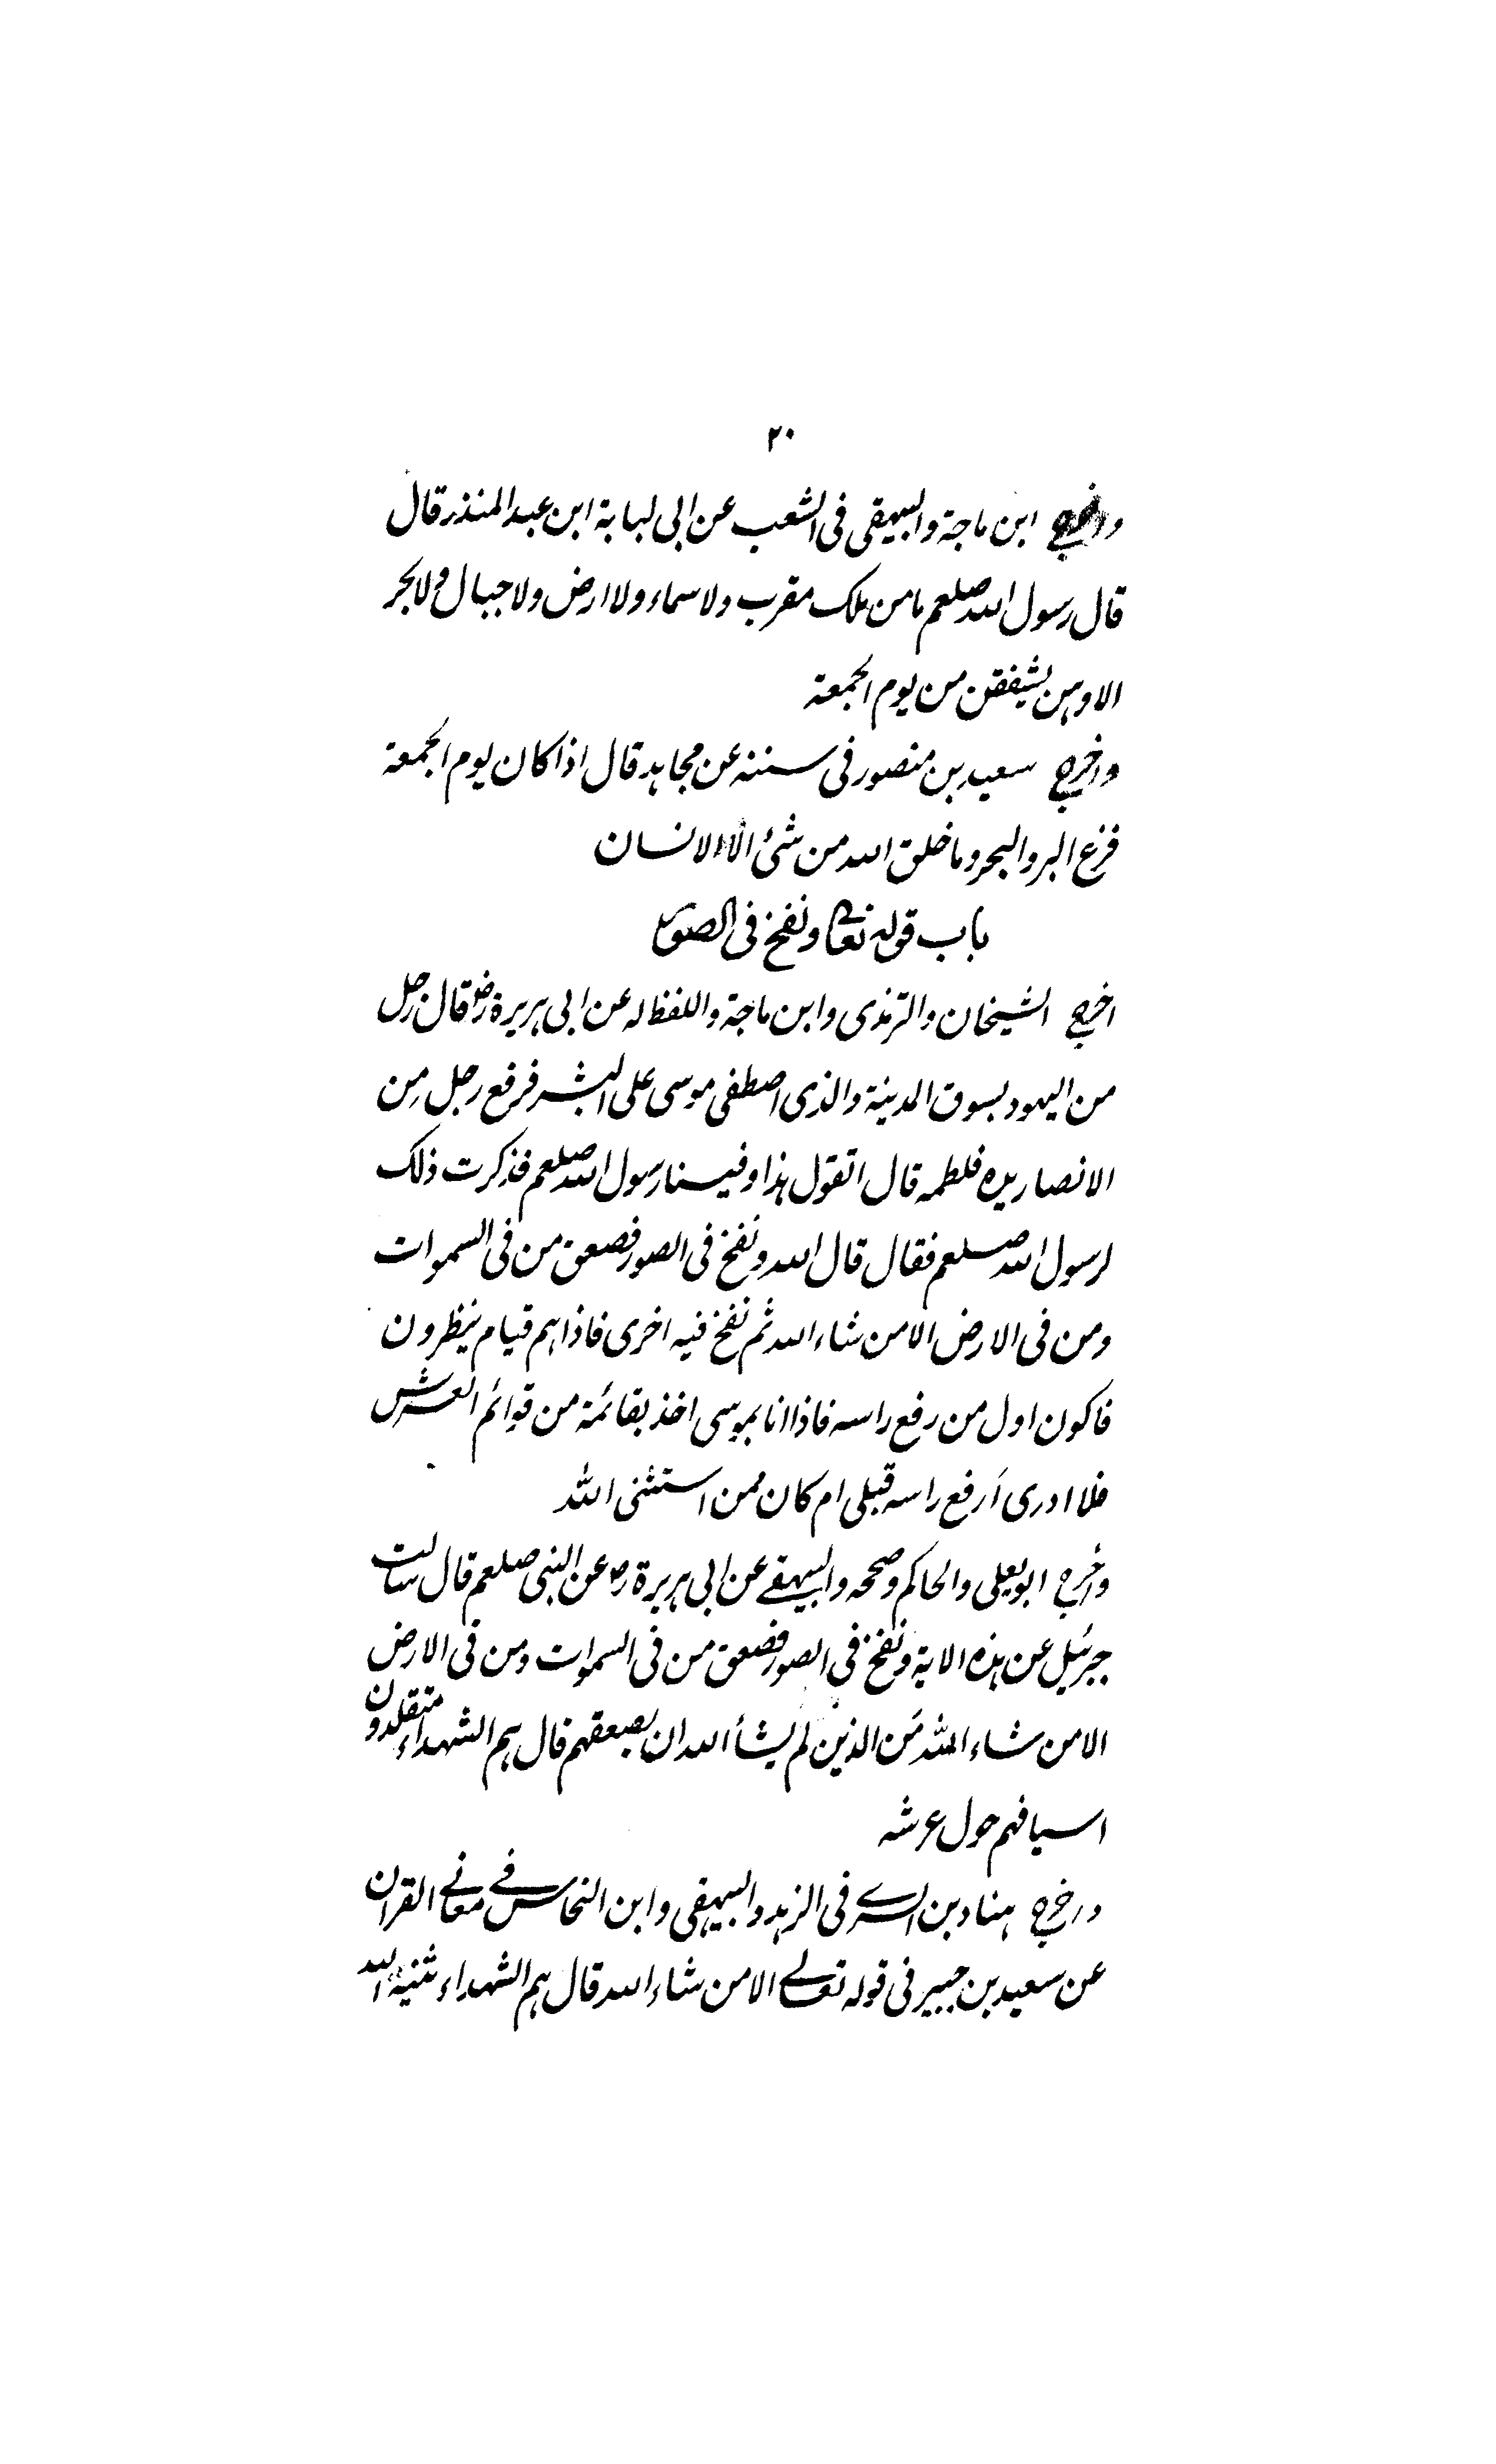 ۲۰
واخرج ابن ماجة والبيهقى فى الشعب عن ابى لبابة ابن عبد المنذر قال
قال رسول الله صلعم ما من ملك مقرب ولا سماء ولا ارض ولا جبال ولا بحر
الا وہن يشفقن من يوم الجمعة
واخرج سعيد بن منصور فى سننه عن مجاہد قال اذا كان يوم الجمعة
فزع البر والبحر وما خلق الله من شئ الا الانسان
باب قوله تعالى ونفخ فى الصور
اخرج الشيخان والترمذى وابن ماجة واللفظ له عن ابى ہريرة رض قال رجل
من اليہود بسوق المدينة والذى اصطفى موسى على البشر فرفع رجل مِن
الانصار يده فلطمه قال اتقول ہذا وفينا رسول الله صلعم فذكرت ذلك
لرسول الله صلعم فقال قال الله ونفخ فى الصور فصعق من فى السموات
ومن فى الارض الا من شاء الله ثم نفخ فيه اخرى فاذا ہم قيام ينظرون
فاكون اول من رفع راسه فاذا انا بموسى اخذ بقائمة من قوائم العرش
فلا ادرى اَرفع راسه قبلى ام كان ممن استثنى الله
واخرج ابو يعلى والحاكم وصححه والبيہقے عن ابى ہريرة رض عن النبى صلعم قال سالت
جبرئيل عن ہذه الاية ونفخ فى الصور فصعق من فى السموات ومن فى الارض
الا من شاء الله مَن الذين لم يشأ الله ان يصعقہم قال ہم الشہداء متقلدون
اسيافہم حول عرشه
واخرج ہناد بن السرے فى الزہد والبيہقى وابن النحاس فے معانے القران
عن سعيد بن جبير فى قوله تعالے الا من شاء الله قال ہم الشہداء ثنية الله